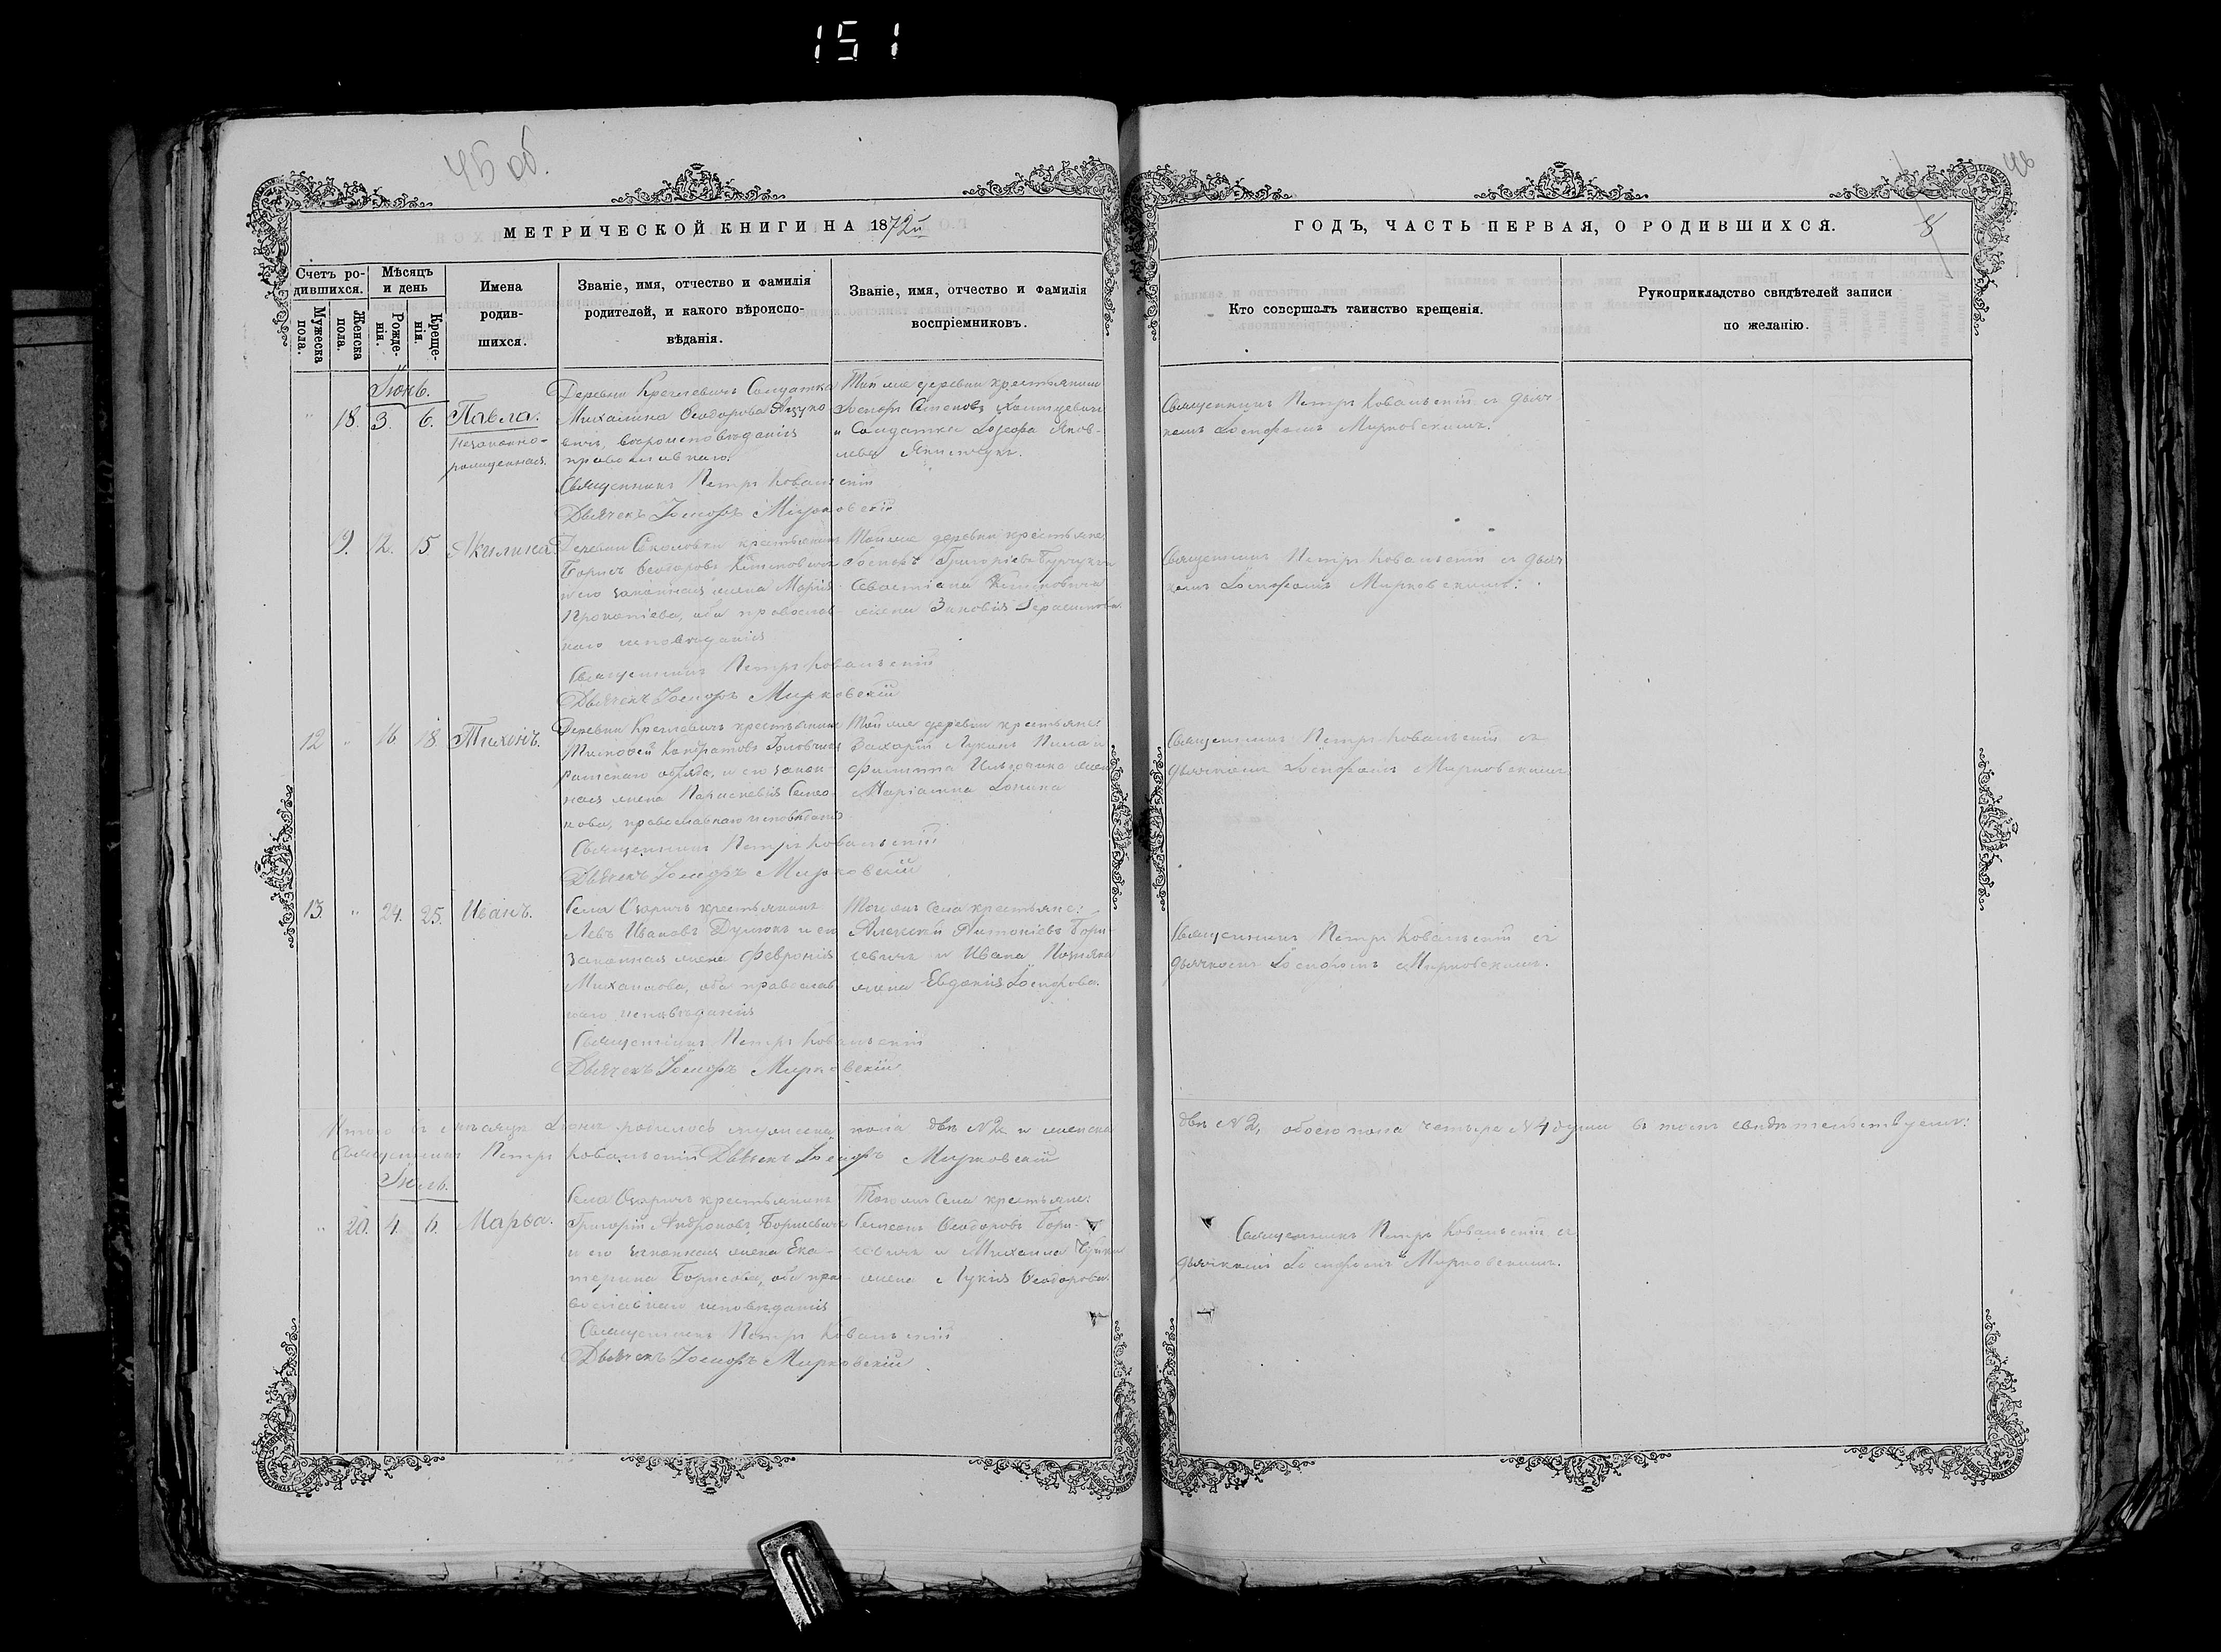 151
45 об.
46
МЕТРИЧЕСКОЙ КНИГИ НА 1872й
ГОДЪ, ЧАСТЬ ПЕРВАЯ, О РОДИВШИХСЯ.
8
Счетъ родившихся.
Мужеска пола.
Женска пола.
Мѣсяцъ и день
Рожденія.
Крещенія.
Имена родившихся.
Званіе, имя, отчество и фамилія
родителей, и какого вѣроиспо-
вѣданія.
Званіе, имя, отчество и фамилія
воспріемниковъ.
Кто совершалъ таинство крещенія.
Рукоприкладство свидѣтелей записи
по желанію.
Іюнь.
" 18. 3. 6. Павла.
незаконно-
рожденная.
Деревни Кречевичъ Солдатка
Михалина Ѳеодорова
вичъ, вѣроисповѣданія
православнаго.
Священникъ Петръ Ковалевскій
Дьячекъ Іосифъ Мирковскій
Той же деревни крестьянинъ
Іосифъ
и Солдатка Іозефа Яков-
лева
Священникъ Петръ Ковалевскій съ дьяч
комъ Іосифомъ Мирковскимъ.
19. 12. 15 Акилина.
Деревни Соколовки крестьянинъ
Борисъ Ѳеодоровъ
и его законная жена Марія
Прокопіева, оба православ-
наго исповѣданія
Священникъ Петръ Ковалевскій
Дьячекъ Іосифъ Мирковскій
Той же деревни крестьяне:
Григоріевъ
жена Зиновія Герасимова.
Священникъ Петръ Ковалевскій съ дьяч
комъ Іосифомъ Мирковскимъ.
12 " 16 18 Тихонъ.
Деревни Кречевичъ крестьянинъ
Тимофей Кондратовъ
Римскаго обряда, и его закон-
ная жена Параскевія Семео-
нова, православнаго исповѣданія
Священникъ Петръ Ковалевскій
Дьячекъ Іосифъ Мирковскій
Той же деревни крестьяне:
Захарій Лукинъ
Филиппа жена
Маріанна
Священникъ Петръ Ковалевскій съ
дьячкомъ Іосифомъ Мирковскимъ
13. " 24. 25. Иванъ.
Села Озаричъ крестьянинъ
Левъ Ивановъ и его
законная жена Февронія
Михайлова, оба православ
наго исповѣданія
Священникъ Петръ Ковалевскій
Дьячекъ Іосифъ Мирковскій
Того же Села крестьяне:
Алексѣй Антоніевъ Бори-
севичъ и Ивана
жена Евдокія Іосифова.
Священникъ Петръ Ковалевскій съ
дьячкомъ Іосифомъ Мирковскимъ.
Итого въ мѣсяцѣ Іюнѣ родилось мужеска пола двѣ № 2 и женска
двѣ № 2, обоего пола четыре № 4 души въ томъ свидѣтельствуемъ:
Священникъ Петръ Ковалевскій Дьячекъ Іосифъ Мирковскій
Іюль.
" 20. 4. 6. Марѳа.
Села Озаричъ крестьянинъ
Григорій Андроновъ Борисевичъ
и его законная жена Ека-
терина Борисова, оба пра-
вославнаго исповѣданія
Священникъ Петръ Ковалевскій
Дьячекъ Іосифъ Мирковскій
Того же Села крестьяне:
Семеонъ Ѳеодоровъ Бори-
севичъ и Михаила
жена Лукія Ѳеодорова.
Священникъ Петръ Ковалевскій съ
дьячкомъ Іосифомъ Мирковскимъ.